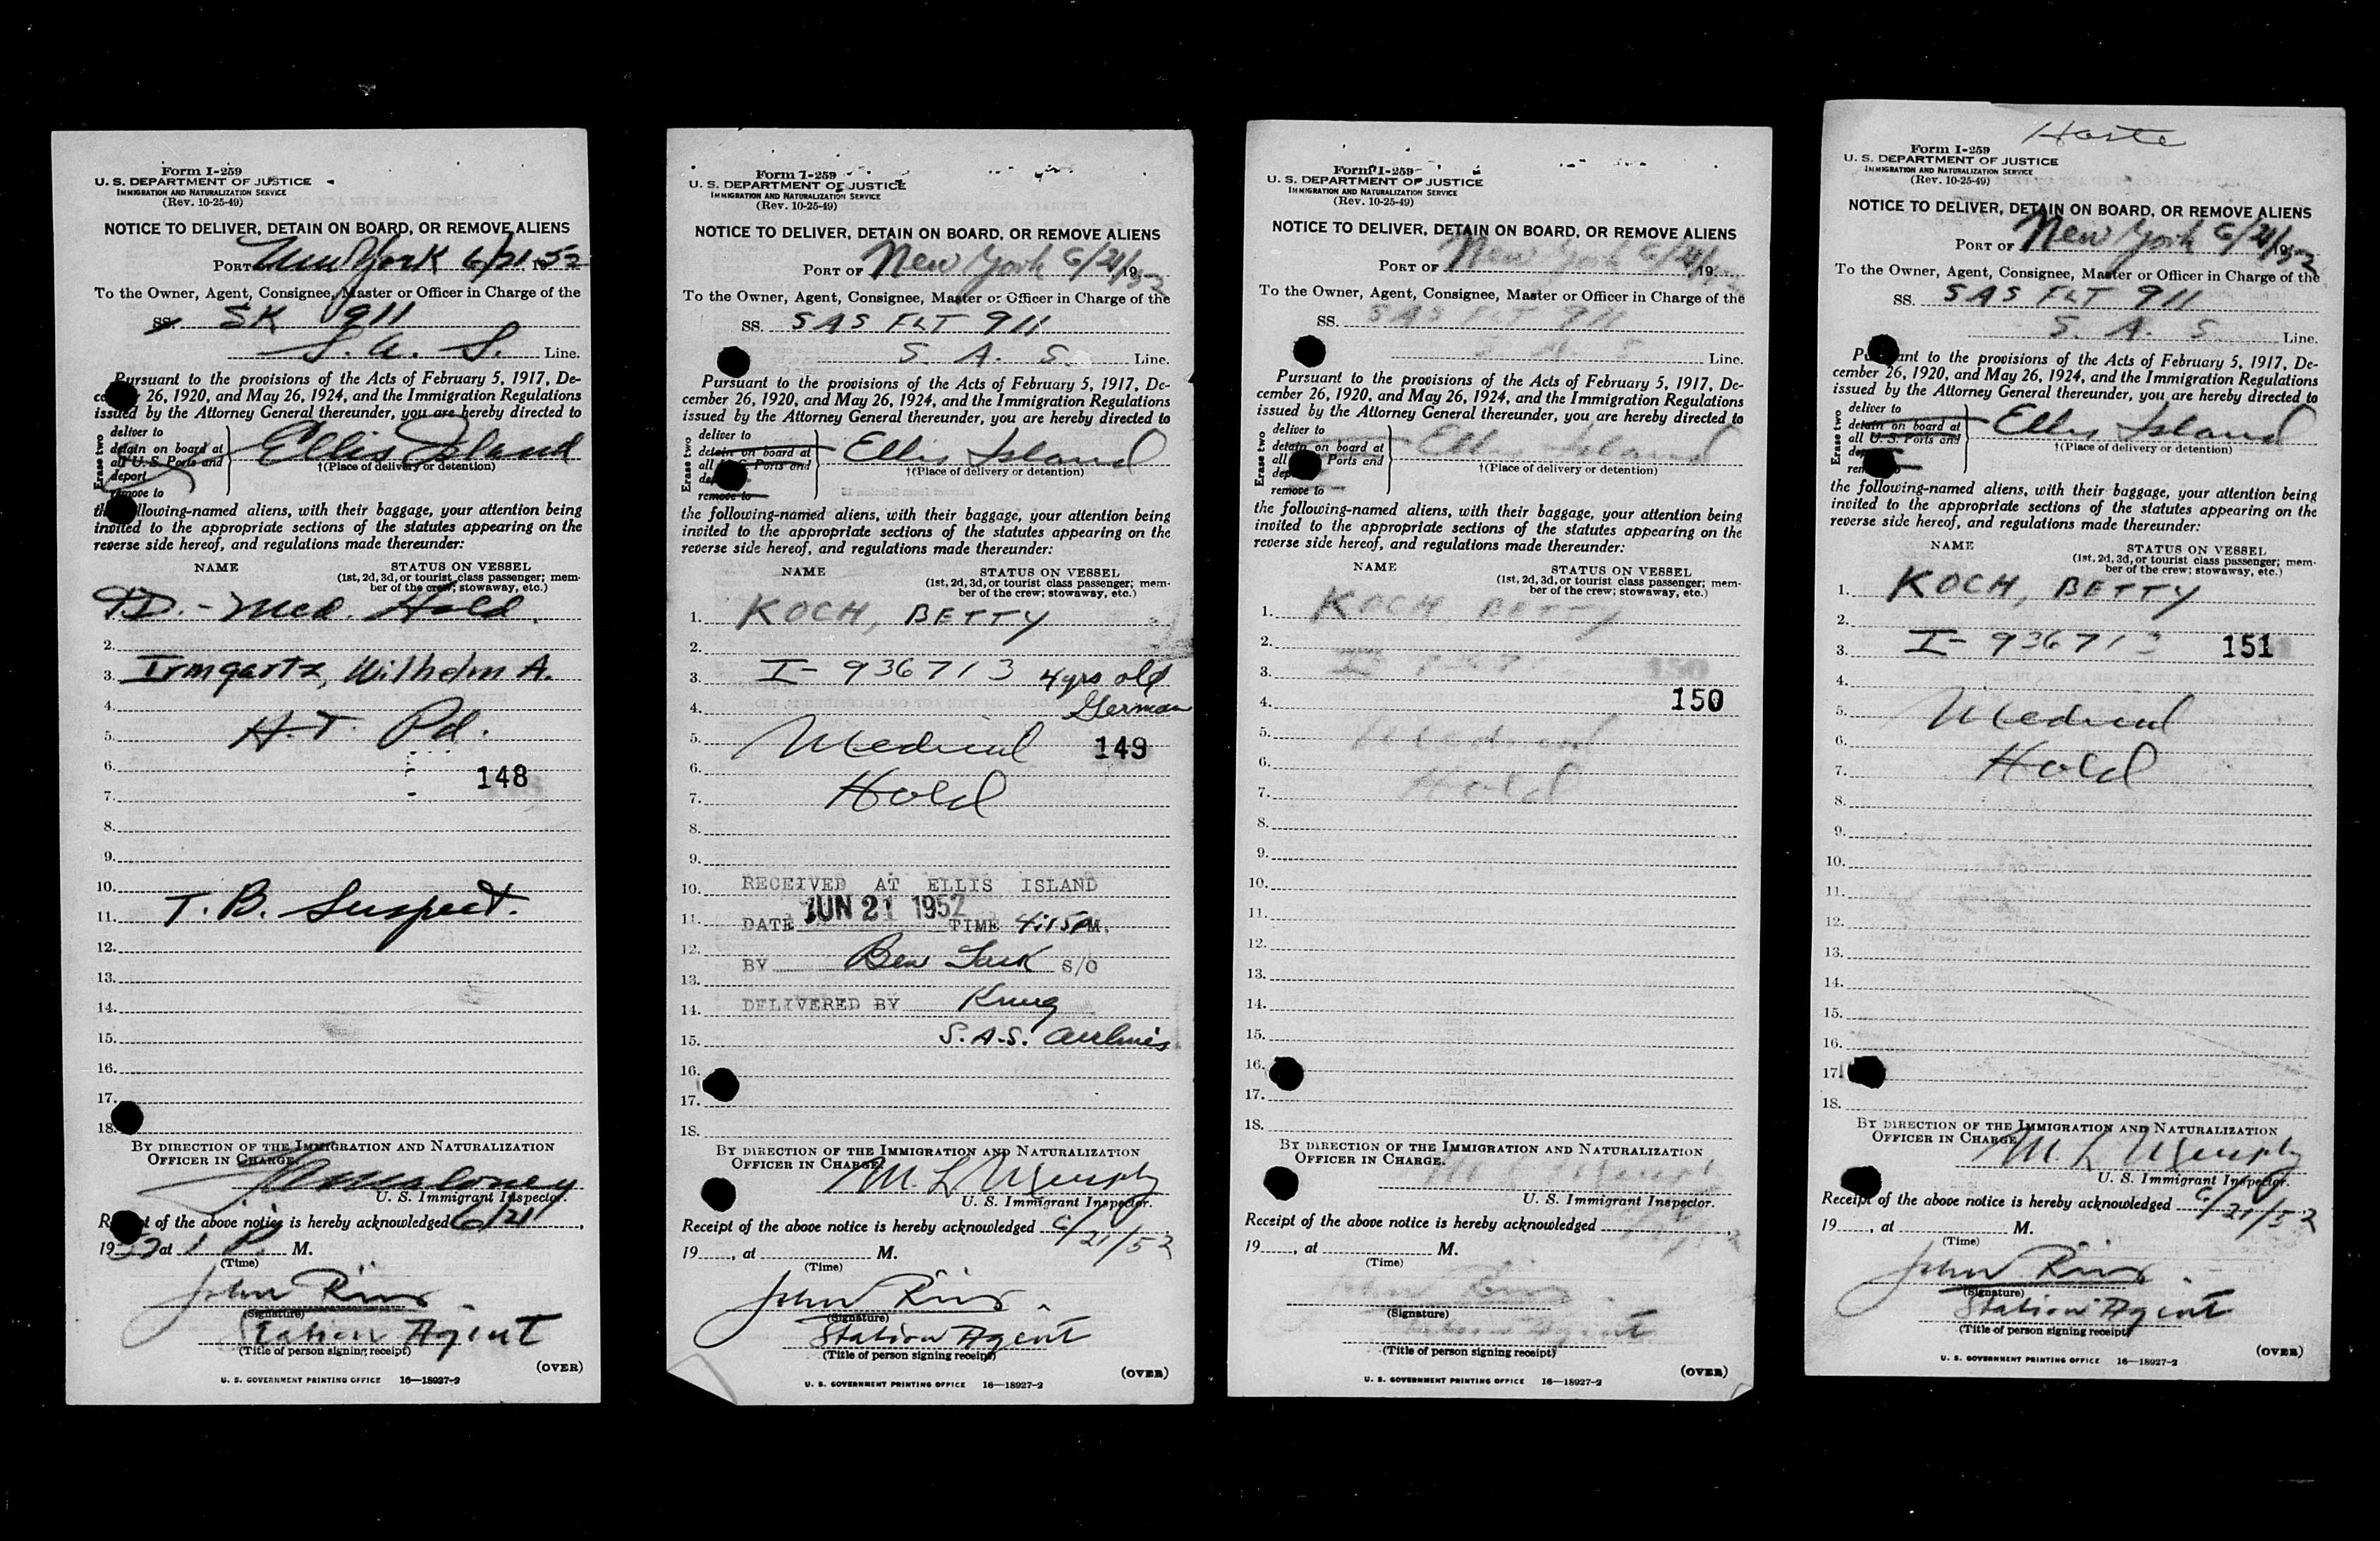 Form I-259
U. S. DEPARTMENT OF JUSTICE
IMMIGRATION AND NATURALIZATION SERVICE
(Rev. 10-25-49)
NOTICE TO DELIVER, DETAIN ON BOARD, OR REMOVE ALIENS
PORT New York 6/21 1952
To the Owner, Agent, Consignee, Master or Officer in Charge of the
SS. SK 911
S. A. S. Line.
Pursuant to the provisions of the Acts of February 5, 1917, De-
26, 1920, and May 26, 1924, and the Immigration Regulations
issued by the Attorney General thereunder, you are hereby directed to
Erase two
deliver to
detain on board at
all U. S. Ports and
deport
remove to
Ellis Island
†(Place of delivery or detention)
following-named aliens, with their baggage, your attention being
invited to the appropriate sections of the statutes appearing on the
reverse side hereof, and regulations made thereunder:
NAME STATUS ON VESSEL
(1st, 2d, 3d, or tourist class passenger; mem-
ber of the crew; stowaway, etc.)
T.D. - Med. Hold
2.
3. Irmgartz, Wilhelm A.
4.
5. H.T. Pd.
6. 148
7.
8.
9.
10.
11. T. B. Suspect.
12.
13.
14.
15.
16.
17.
18.
BY DIRECTION OF THE IMMIGRATION AND NATURALIZATION
OFFICER IN CHARGE.
U. S. Immigrant Inspector.
Receipt of the above notice is hereby acknowledged 6/21,
1952 at 1 P. M.
(Time)
John
(Signature)
Station Agent
(Title of person signing receipt)
(OVER)
U. S. GOVERNMENT PRINTING OFFICE 16—18927-2
Form I-259
U. S. DEPARTMENT OF JUSTICE
IMMIGRATION AND NATURALIZATION SERVICE
(Rev. 10-25-49)
NOTICE TO DELIVER, DETAIN ON BOARD, OR REMOVE ALIENS
PORT OF New York 6/21/1952
To the Owner, Agent, Consignee, Master or Officer in Charge of the
SS. SAS FLT 911
S. A. S. Line.
Pursuant to the provisions of the Acts of February 5, 1917, De-
cember 26, 1920, and May 26, 1924, and the Immigration Regulations
issued by the Attorney General thereunder, you are hereby directed to
Erase two
deliver to
detain on board at
all Ports and
remove to
Ellis Island
†(Place of delivery or detention)
the following-named aliens, with their baggage, your attention being
invited to the appropriate sections of the statutes appearing on the
reverse side hereof, and regulations made thereunder:
NAME STATUS ON VESSEL
(1st, 2d, 3d, or tourist class passenger; mem-
ber of the crew; stowaway, etc.)
1. KOCH, BETTY
2.
3. I-936713 4 yrs old
4. German
5. Medical 149
6.
7. Hold
8.
9.
10. RECEIVED AT ELLIS ISLAND
11. DATE JUN 21 1952 TIME 4:15 PM.
12.
BY Ben S/O
13.
14. DELIVERED BY Krug
15. S.A.S. Airlines
16.
17.
18.
BY DIRECTION OF THE IMMIGRATION AND NATURALIZATION
OFFICER IN CHARGE.
M. L. Murphy
U. S. Immigrant Inspector.
Receipt of the above notice is hereby acknowledged 6/21/52
19, at M.
(Time)
John
(Signature)
Station Agent
(Title of person signing receipt)
(OVER)
U. S. GOVERNMENT PRINTING OFFICE 16—18927-2
Form I-259
U. S. DEPARTMENT OF JUSTICE
IMMIGRATION AND NATURALIZATION SERVICE
(Rev. 10-25-49)
NOTICE TO DELIVER, DETAIN ON BOARD, OR REMOVE ALIENS
PORT OF New York 6/21/19
To the Owner, Agent, Consignee, Master or Officer in Charge of the
SS. SAS FLT 911
S. A. S Line.
Pursuant to the provisions of the Acts of February 5, 1917, De-
cember 26, 1920, and May 26, 1924, and the Immigration Regulations
issued by the Attorney General thereunder, you are hereby directed to
Erase two
deliver to
detain on board at
all Ports and
remove to
Ellis Island
†(Place of delivery or detention)
the following-named aliens, with their baggage, your attention being
invited to the appropriate sections of the statutes appearing on the
reverse side hereof, and regulations made thereunder:
NAME STATUS ON VESSEL
(1st, 2d, 3d, or tourist class passenger; mem-
ber of the crew; stowaway, etc.)
1. KOCH, BETTY
2.
3. 150
4. 150
5. Medical
6.
7. Hold
8.
9.
10.
11.
12.
13.
14.
15.
16.
17.
18.
BY DIRECTION OF THE IMMIGRATION AND NATURALIZATION
OFFICER IN CHARGE.
M L Murphy
U. S. Immigrant Inspector.
Receipt of the above notice is hereby acknowledged
19, at M.
(Time)
John
(Signature)
Station Agent
(Title of person signing receipt)
(OVER)
U. S. GOVERNMENT PRINTING OFFICE 16—18927-2
Form I-259
U. S. DEPARTMENT OF JUSTICE
IMMIGRATION AND NATURALIZATION SERVICE
(Rev. 10-25-49)
NOTICE TO DELIVER, DETAIN ON BOARD, OR REMOVE ALIENS
PORT OF New York 6/21/1952
To the Owner, Agent, Consignee, Master or Officer in Charge of the
SS. SAS FLT 911
S. A. S. Line.
Pursuant to the provisions of the Acts of February 5, 1917, De-
cember 26, 1920, and May 26, 1924, and the Immigration Regulations
issued by the Attorney General thereunder, you are hereby directed to
Erase two
deliver to
detain on board at
all U. S. Ports and
Ellis Island
†(Place of delivery or detention)
the following-named aliens, with their baggage, your attention being
invited to the appropriate sections of the statutes appearing on the
reverse side hereof, and regulations made thereunder:
NAME STATUS ON VESSEL
(1st, 2d, 3d, or tourist class passenger; mem-
ber of the crew; stowaway, etc.)
1. KOCH, BETTY
2.
3. I-936713 151
4.
5. Medical
6.
7. Hold
8.
9.
10.
11.
12.
13.
14.
15.
16.
17.
18.
BY DIRECTION OF THE IMMIGRATION AND NATURALIZATION
OFFICER IN CHARGE.
M. L Murphy
U. S. Immigrant Inspector.
Receipt of the above notice is hereby acknowledged 6/21/52
19, at M.
(Time)
John
(Signature)
Station Agent
(Title of person signing receipt)
(OVER)
U. S. GOVERNMENT PRINTING OFFICE 16—18927-2